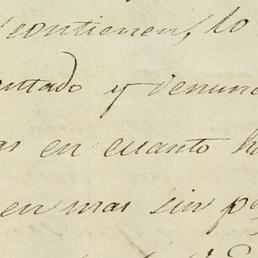 contienen, lo
entado y denunc
as en cuanto h
en mas sin p